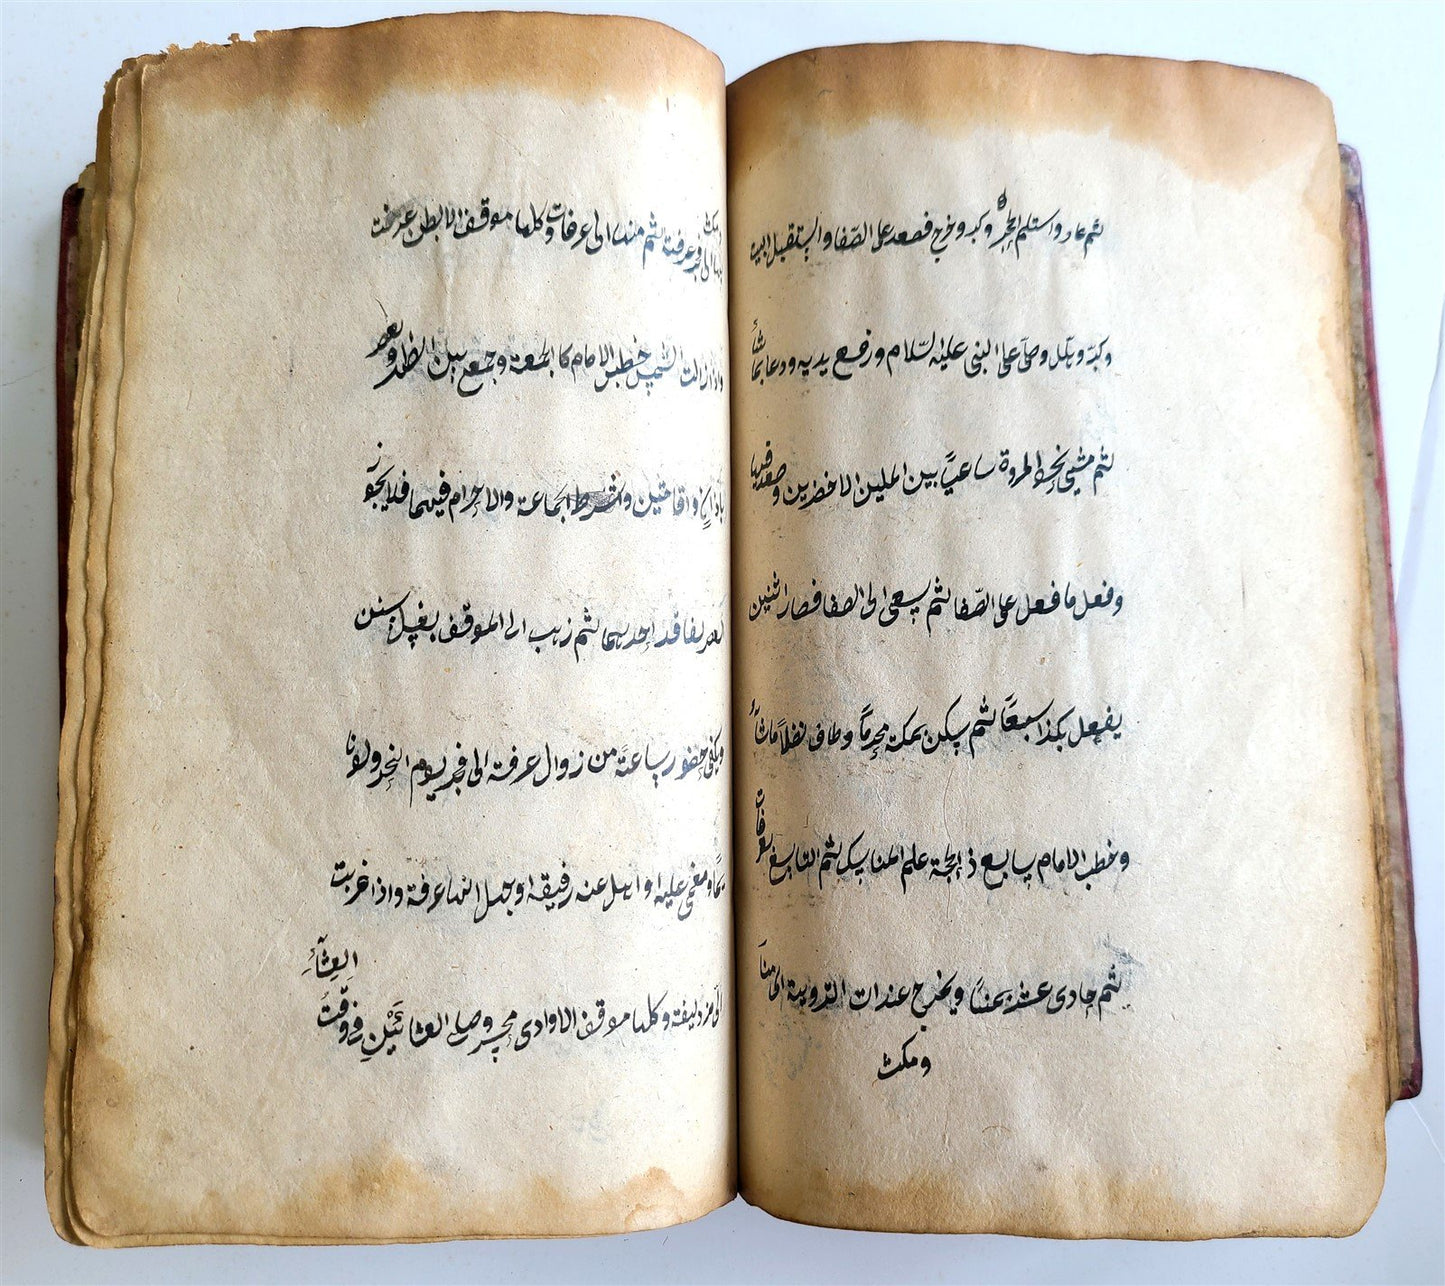 ثم عاد واستلم الحجر وكبر وخرج فصعد على الصفا واستقبل البيت
وكبّر وهلل وصلى على النبى عليه السّلام ورفع يديه ودعا بما شأ
ثم مشى نحو المروة ساعيًا بين الميلين الاخضرين وصعد فيها
وفعل ما فعل على الصّفا ثم يسعى الى الصفا فصار اثنين
يفعل هكذا سبعًا ثم يسكن بمكة محرمًا وطاف نفلًا ما شأ
وخطب الامام سابع ذى الحجة علم المناسك ثم التاسع بعرفات
ثم حادى عشر بمنًا ويخرج غدات التروية الى منًا
ومكث
ومكث بها الى فجر عرفة ثم منها الى عرفات وكلها موقف الا بطن عرفة
واذا زالت الشمس خطب الامام كالجمعة وجمع بين الظهر والعصر
باذان واقامتين وشرط الجماعة والاحرام فيهما فلا يجوز
العصر لفاقد احديهما ثم ذهب الى الموقف بغسل سنن
ويكفى حضور ساعة من زوال عرفة الى فجر يوم النحر ولو نا
ئما ومغمى عليه او اهل عنه رفيقه او جهل انها عرفة واذا غربت
الى مزدلفة وكلها موقف الا وادى محسر وصلى العشائين فى وقت العشأ